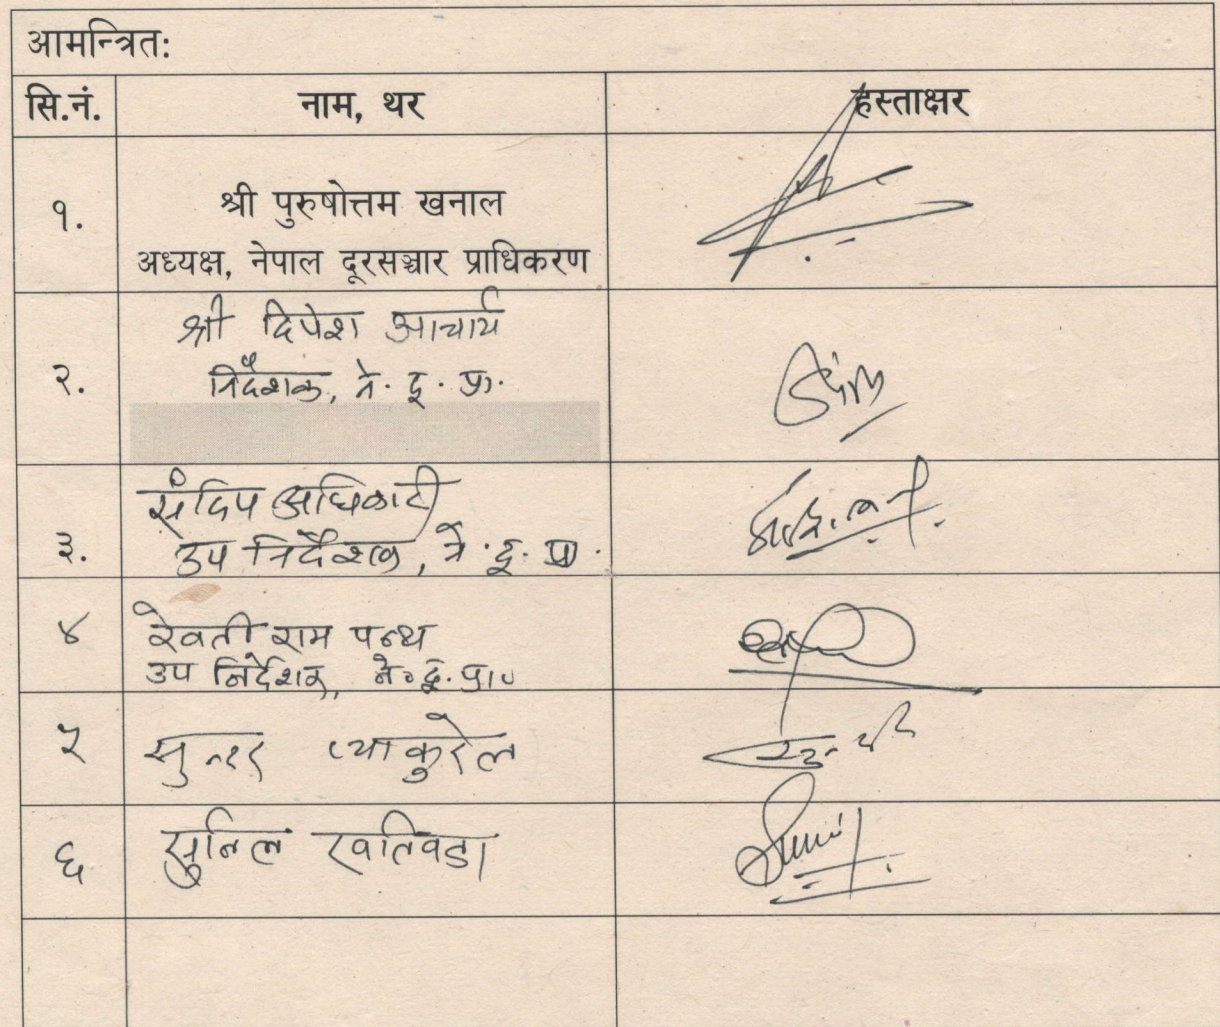 आमन्त्रित:
सि.नं. नाम, थर हस्ताक्षर
१. श्री पुरुषोत्तम खनाल
अध्यक्ष, नेपाल दूरसञ्चार प्राधिकरण
श्री दिपेश आचार्य
२. निर्देशक, ने. दू. प्रा.
संदिप अधिकारी
३. उप निर्देशक, ने. दू. प्रा.
४ रेवती राम पन्थ
उप निर्देशक, ने. दू. प्रा.
५ सुन्दर प्याकुरेल
६ सुनिल खतिवडा